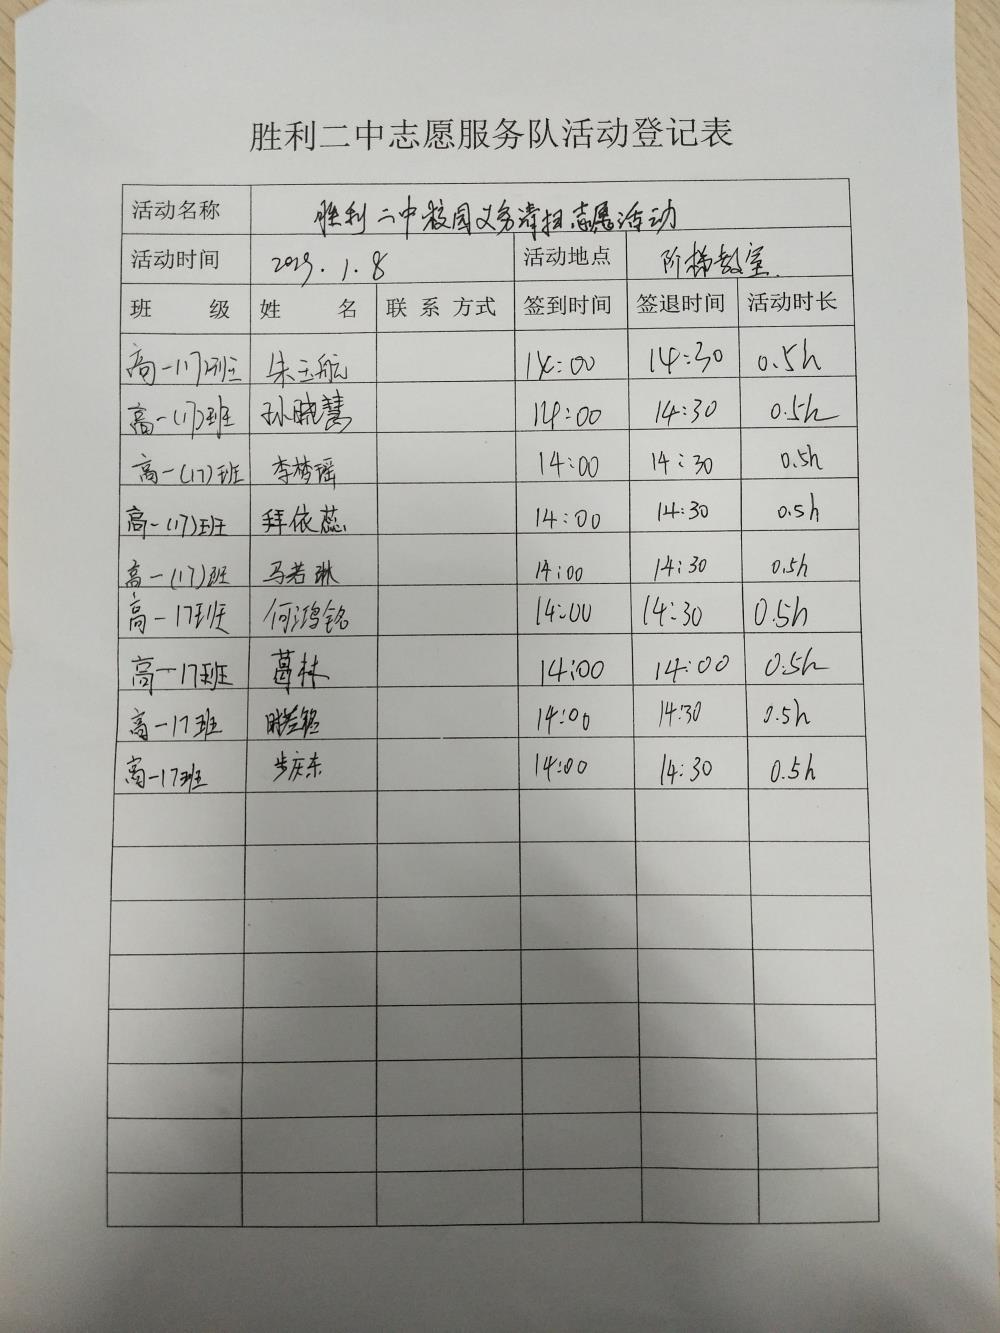 胜利二中志愿服务队活动登记表
活动名称 胜利二中校园义务清扫志愿活动
活动时间 2019.1.8 活动地点 阶梯教室.
班 级 姓 名 联 系 方式 签到时间 签退时间 活动时长
高一17班 朱玉航 14:00 14:30 0.5h
高一(17)班 孙晓慧 14:00 14:30 0.5h
高一(17)班 李梦瑶 14:00 14:30 0.5h
高一(17)班 拜依蕊 14:00 14:30 0.5h
高一(17)班 马若琳 14:00 14:30 0.5h
高一17班 何鸿铭 14:00 14:30 0.5h
高一17班 葛林 14:00 14:00 0.5h
高一17班 14:00 14:30 0.5h
高一17班 步庆东 14:00 14:30 0.5h